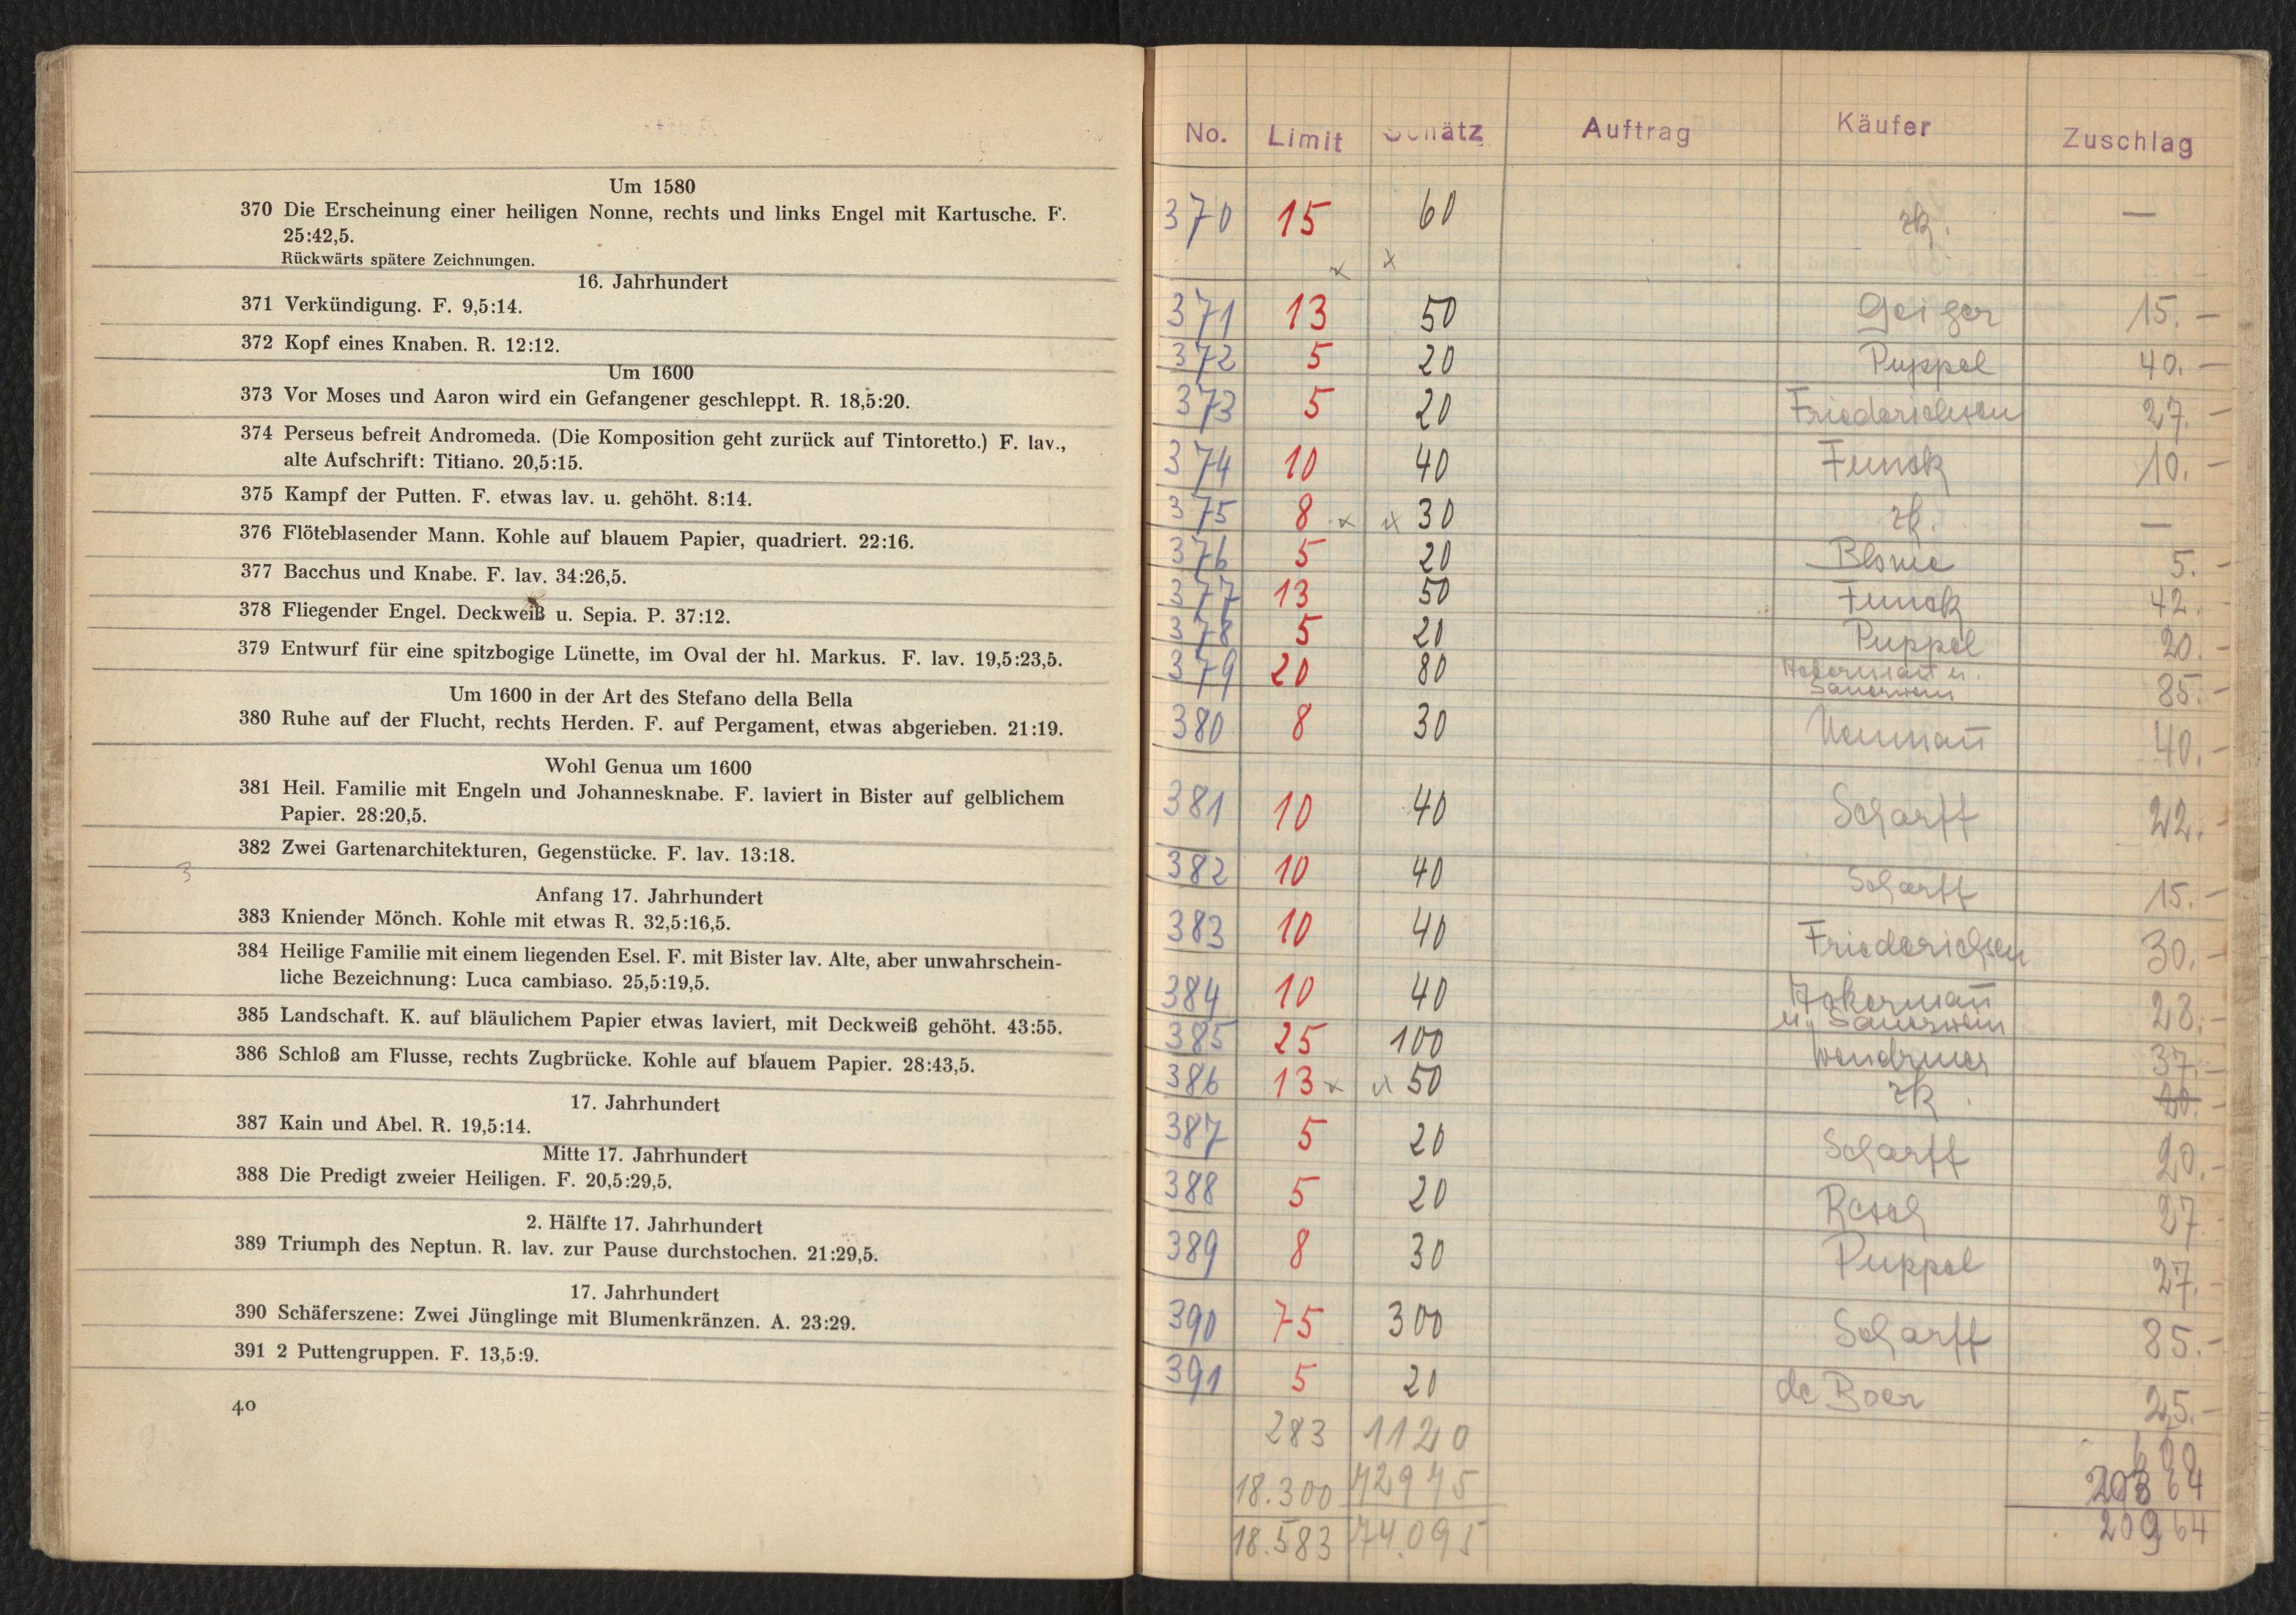 Um 1580
370 Die Erscheinung einer heiligen Nonne, rechts und links Engel mit Kartusche. F.
25:42,5.
Rückwärts spätere Zeichnungen.
16. Jahrhundert
371 Verkündigung. F. 9,5:14.
372 Kopf eines Knaben. R. 12:12.
Um 1600
373 Vor Moses und Aaron wird ein Gefangener geschleppt. R. 18,5:20.
374 Perseus befreit Andromeda. (Die Komposition geht zurück auf Tintoretto.) F. lav.,
alte Aufschrift: Titiano. 20,5:15.
375 Kampf der Putten. F. etwas lav. u. gehöht. 8:14.
376 Flöteblasender Mann. Kohle auf blauem Papier, quadriert. 22:16.
377 Bacchus und Knabe. F. lav. 34:26,5.
378 Fliegender Engel. Deckweiß u. Sepia. P. 37:12.
379 Entwurf für eine spitzbogige Lünette, im Oval der hl. Markus. F. lav. 19,5:23,5.
Um 1600 in der Art des Stefano della Bella
380 Ruhe auf der Flucht, rechts Herden. F. auf Pergament, etwas abgerieben. 21:19.
Wohl Genua um 1600
381 Heil. Familie mit Engeln und Johannesknabe. F. laviert in Bister auf gelblichem
Papier. 28:20,5.
382 Zwei Gartenarchitekturen, Gegenstücke. F. lav. 13:18.
3
Anfang 17. Jahrhundert
383 Kniender Mönch. Kohle mit etwas R. 32,5:16,5.
384 Heilige Familie mit einem liegenden Esel. F. mit Bister lav. Alte, aber unwahrschein-
liche Bezeichnung: Luca cambiaso. 25,5:19,5.
385 Landschaft. K. auf bläulichem Papier etwas laviert, mit Deckweiß gehöht. 43:55.
386 Schloß am Flusse, rechts Zugbrücke. Kohle auf blauem Papier. 28:43,5.
17. Jahrhundert
387 Kain und Abel. R. 19,5:14.
Mitte 17. Jahrhundert
388 Die Predigt zweier Heiligen. F. 20,5:29,5.
2. Hälfte 17. Jahrhundert
389 Triumph des Neptun. R. lav. zur Pause durchstochen. 21:29,5.
17. Jahrhundert
390 Schäferszene: Zwei Jünglinge mit Blumenkränzen. A. 23:29.
391 2 Puttengruppen. F. 13,5:9.
40
No. Limit Schätz Auftrag Käufer Zuschlag
370 15 60 zk. —
x x
371 13 50 Geiger 15.—
372 5 20 Puppel 40.—
373 5 20 Friederichsen 27.—
374 10 40 Funck 10.—
375 8 x x 30 zk. —
376 5 20 Blome 5.—
377 13 50 Funck 42.—
378 5 20 Puppel 20.—
379 20 80 Ackermañ u. Sauerwein 85.—
380 8 30 Neumañ 40.—
381 10 40 Scharff 22.—
382 10 40 Scharff 15.—
383 10 40 Friederichsen 30.—
384 10 40 Ackermañ u. Sauerwein 28.—
385 25 100 Wendriner 37.—
386 13 x x 50 zk. 20.—
387 5 20 Scharff 20.—
388 5 20 Rosch 27
389 8 30 Puppel 27.—
390 75 300 Scharff 85.—
391 5 20 de Boer 25.—
283 1120 600
18.300 72975 20364
18.583 74.095 20964